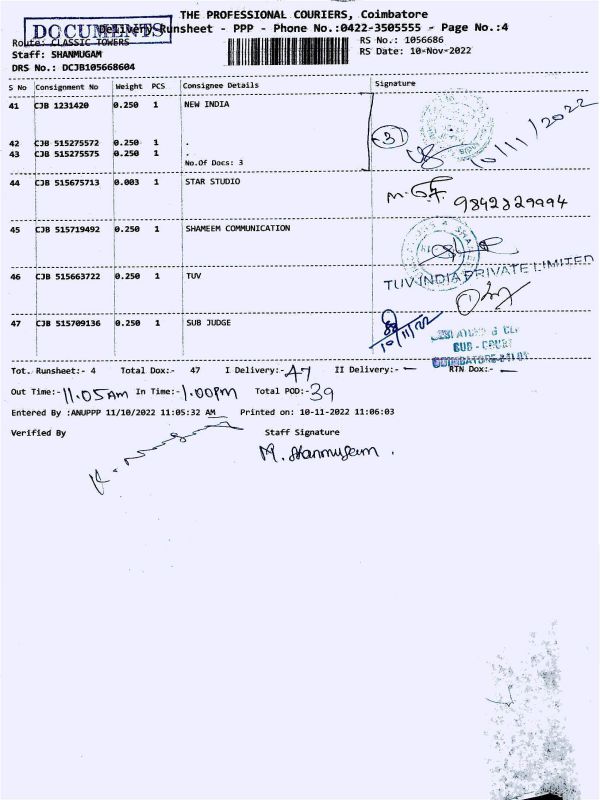 THE PROFESSIONAL COURIERS, Coimbatore
DOCUMENTS
Delivery Runsheet - PPP - Phone No.:0422-3505555 - Page No.:4
Route: CLASSIC TOWERS RS No.: 1056686
Staff: SHANMUGAM RS Date: 10-Nov-2022
DRS No.: DCJB105668604
S No Consignment No Weight PCS Consignee Details Signature
41 CJB 1231420 0.250 1 NEW INDIA
10/11/2022
42 CJB 515275572 0.250 1 .
3
43 CJB 515275575 0.250 1 .
No.Of Docs: 3
44 CJB 515675713 0.003 1 STAR STUDIO
9842329994
45 CJB 515719492 0.250 1 SHAMEEM COMMUNICATION
46 CJB 515663722 0.250 1 TUV
TUV INDIA PRIVATE LIMITED
47 CJB 515709136 0.250 1 SUB JUDGE
10/11/22
SUB - COURT
Tot. Runsheet:- 4 Total Dox:- 47 I Delivery:- 47 II Delivery:- — RTN Dox:- —
Out Time:- 11.05 Am In Time:- 1.00 Pm Total POD:- 39
Entered By :ANUPPP 11/10/2022 11:05:32 AM Printed on: 10-11-2022 11:06:03
Verified By Staff Signature
M. Shanmugam .